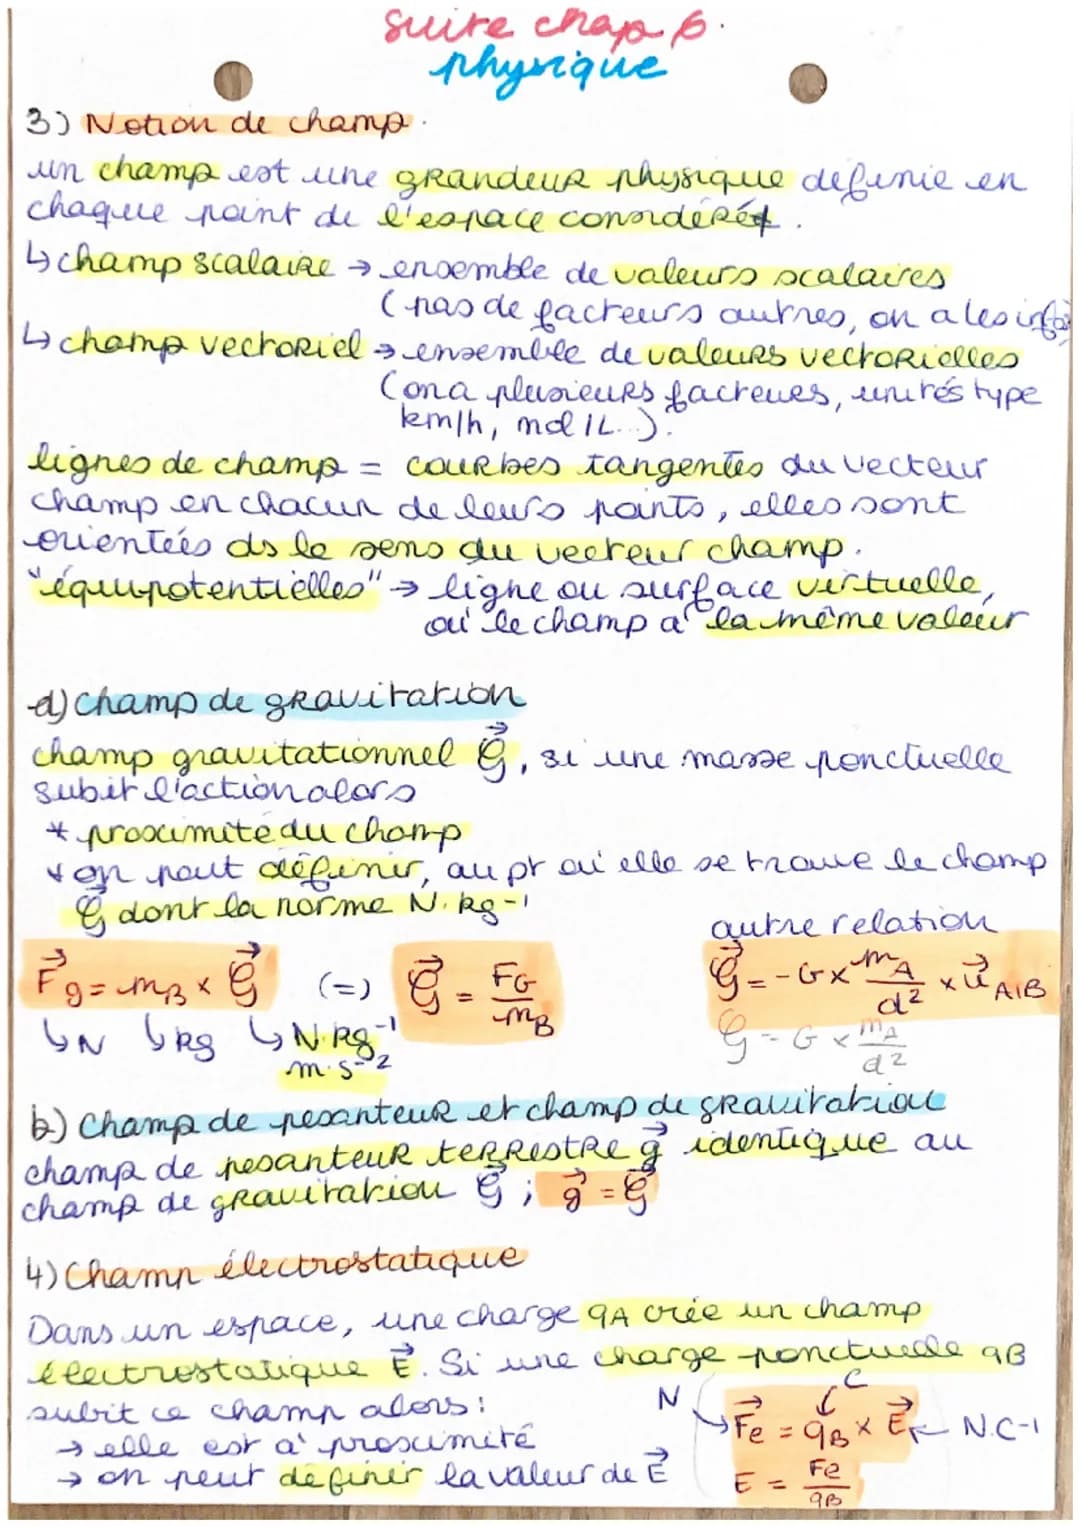 suite chap 6.
physique
3) Notion de champ.
un champ est une grandeur physique definie en
chaque point de l'espace considéré.
↳ champ scalaire → ensemble de valeurs scalaires
(pas de facteurs autres, on a les infos)
↳ champ vectoriel → ensemble de valeurs vectorielles
(on a plusieurs facteurs, unités type
km/h, mol/L...).
lignes de champ = courbes tangentes du vecteur
champ en chacun de leurs points, elles sont
orientées ds le sens du vecteur champ.
"équipotentielles" → ligne ou surface virtuelle,
où le champ a la même valeur
a) Champ de gravitation
champ gravitationnel G⃗, si une masse ponctuelle
subit l'action alors
* proximité du champ
* on peut définir, au pt où elle se trouve le champ
G⃗ dont la norme N.kg-1
autre relation
F⃗g = mB × G⃗ (=) G⃗ = FG/mB G⃗ = -G × mA/d² × u⃗A/B
↳ N ↳ kg ↳ N.kg⁻¹ G = G × mA/d²
m.s⁻²
b) Champ de pesanteur et champ de gravitation
champ de pesanteur terrestre g⃗ identique au
champ de gravitation G⃗ ; g⃗ = G⃗
4) Champ électrostatique
Dans un espace, une charge qA crée un champ
électrostatique E⃗. Si une charge ponctuelle qB
subit ce champ alors : N C
→ elle est à proximité F⃗e = qB × E⃗ ← N.C-1
→ on peut définir la valeur de E⃗ E = Fe/qB